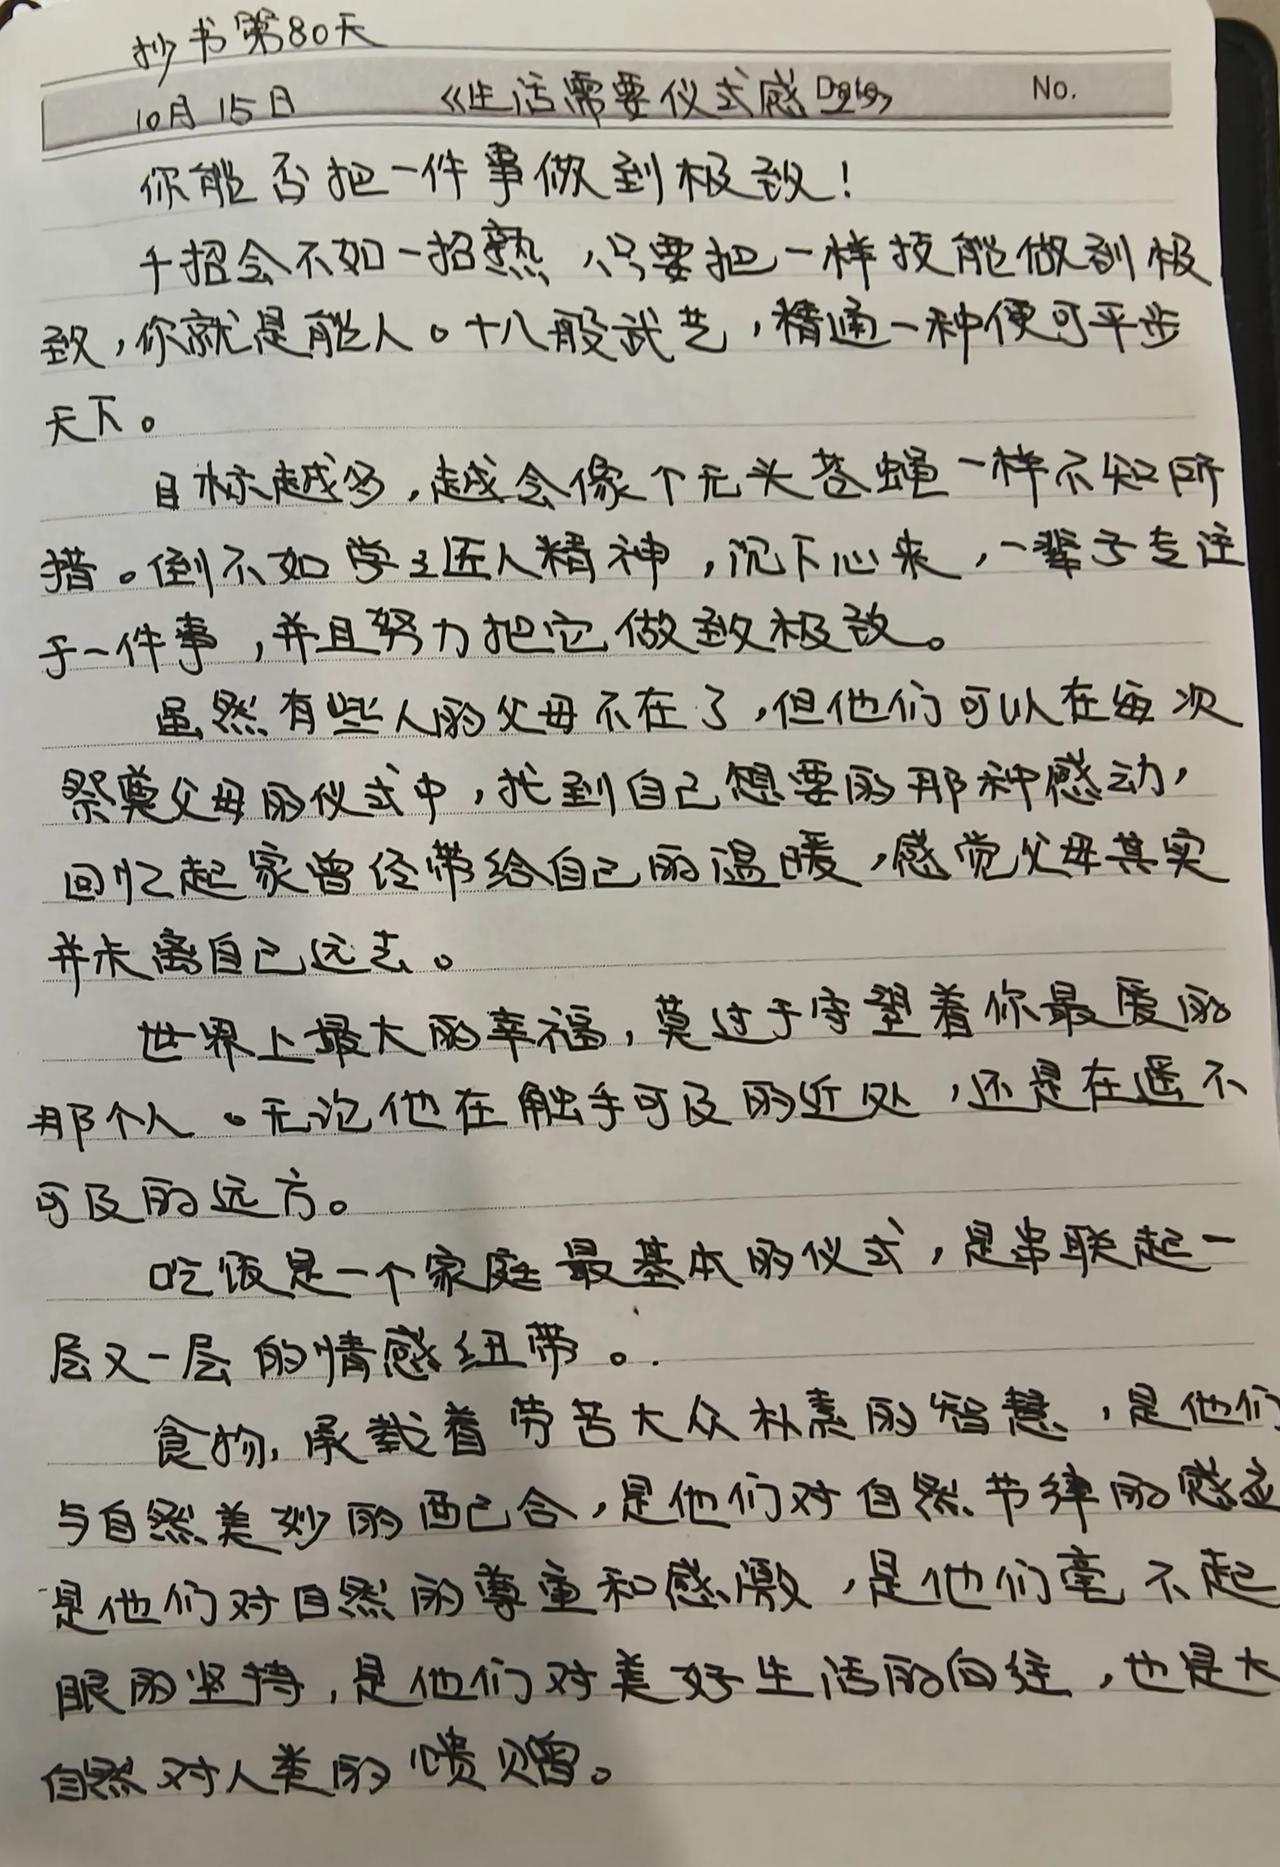 抄书第80天
10月15日 《生活需要仪式感》 Date No.
你能否把一件事做到极致!
千招会不如一招熟,只要把一样技能做到极
致,你就是能人。十八般武艺,精通一种便可平步
天下。
目标越多,越会像个无头苍蝇一样不知所
措。倒不如学工匠人精神,沉下心来,一辈子专注
于一件事,并且努力把它做致极致。
虽然有些人的父母不在了,但他们可以在每次
祭奠父母的仪式中,找到自己想要的那种感动,
回忆起家曾经带给自己的温暖,感觉父母其实
并未离自己远去。
世界上最大的幸福,莫过于守望着你最爱的
那个人。无论他在触手可及的近处,还是在遥不
可及的远方。
吃饭是一个家庭最基本的仪式,是串联起一
层又一层的情感纽带。
食物,承载着劳苦大众朴素的智慧,是他们
与自然美妙的配合,是他们对自然节律的感应
是他们对自然的尊重和感激,是他们毫不起
眼的坚持,是他们对美好生活的向往,也是大
自然对人类的馈赠。